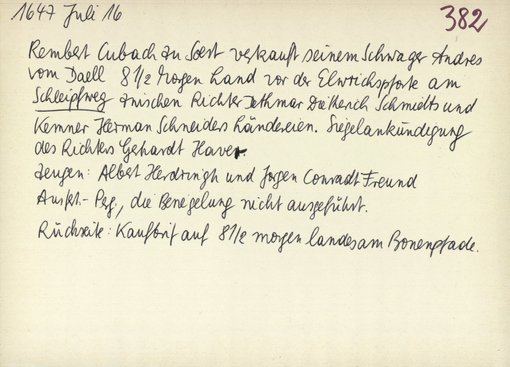 1647 Juli 16
382
Rembert Cubach zu Soest verkauft seinem Schwager Andres
vom Daell 8 1/2 Morgen Land vor der Elwrichspforte am
Schleipfweg zwischen Richter Dethmar Dietherich Schmidts und
Kemner Herman Schneiders Ländereien. Siegelankündigung
des Richters Gehardt Haver.
Zeugen: Albert Herdringh und Jorgen Conradt Freund
Ausf.- Perg., die Besiegelung nicht ausgeführt.
Rückseite: Kaufbrif auf 8 1/2 morgen landes am Bonenpfade.